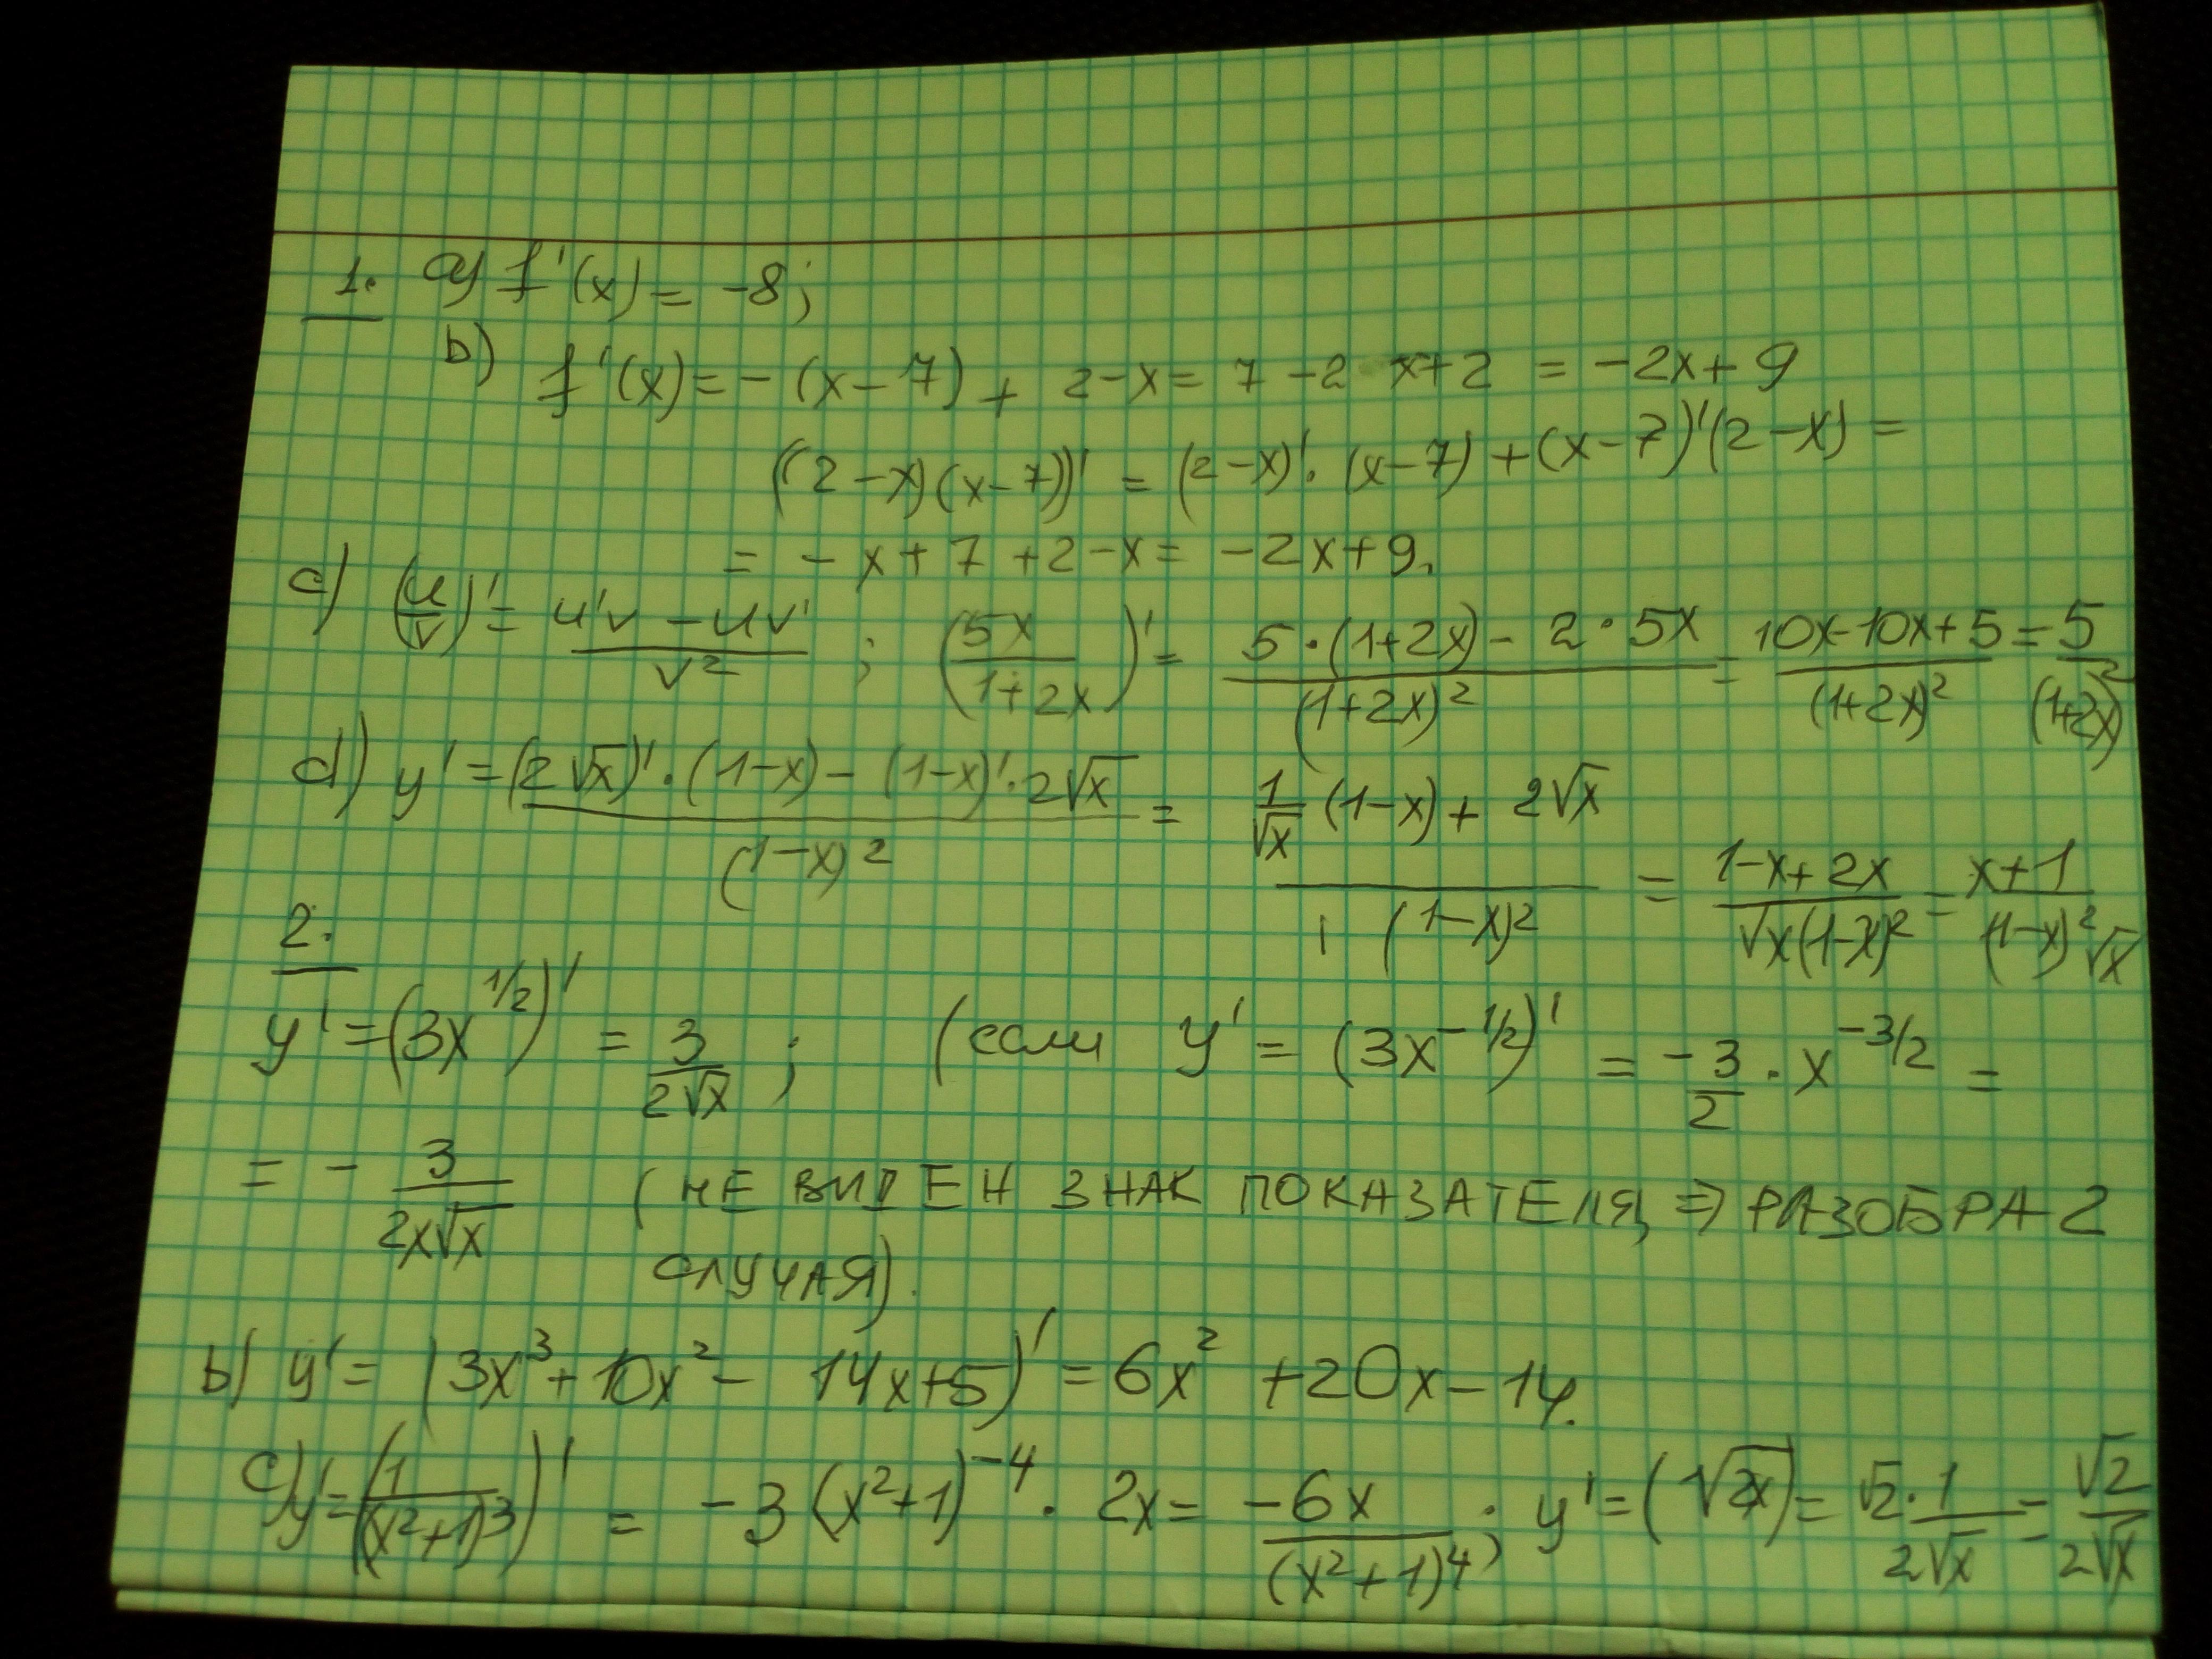 1. a) f'(x) = -8;
b) f'(x) = -(x-7) + 2-x = 7-2x+2 = -2x+9
((2-x)(x-7))' = (2-x)'·(x-7)+(x-7)'(2-x) =
= -x+7+2-x = -2x+9.
c) (u/v)' = (u'v - uv')/v²; (5x/(1+2x))' = (5·(1+2x) - 2·5x)/(1+2x)² = (10x-10x+5)/(1+2x)² = 5/(1+2x)²
d) y' = ((2√x)'·(1-x) - (1-x)'·2√x)/(1-x)² = (1/√x (1-x) + 2√x)/(1-x)² = (1-x+2x)/(√x(1-x)²) = (x+1)/((1-x)²√x)
2.
y' = (3x^1/2)' = 3/(2√x); (если y' = (3x^-1/2)' = -3/2·x^-3/2 =
= - 3/(2x√x) (НЕ ВИДЕН ЗНАК ПОКАЗАТЕЛЯ => РАЗОБРА 2
СЛУЧАЯ).
b) y' = (3x³+10x²- 14x+5)' = 6x² +20x-14.
c) y' = (1/(x²+1)³)' = -3(x²+1)^-4 · 2x = -6x/(x²+1)⁴; y' = (√2x) = √2·1/(2√x) = √2/(2√x)